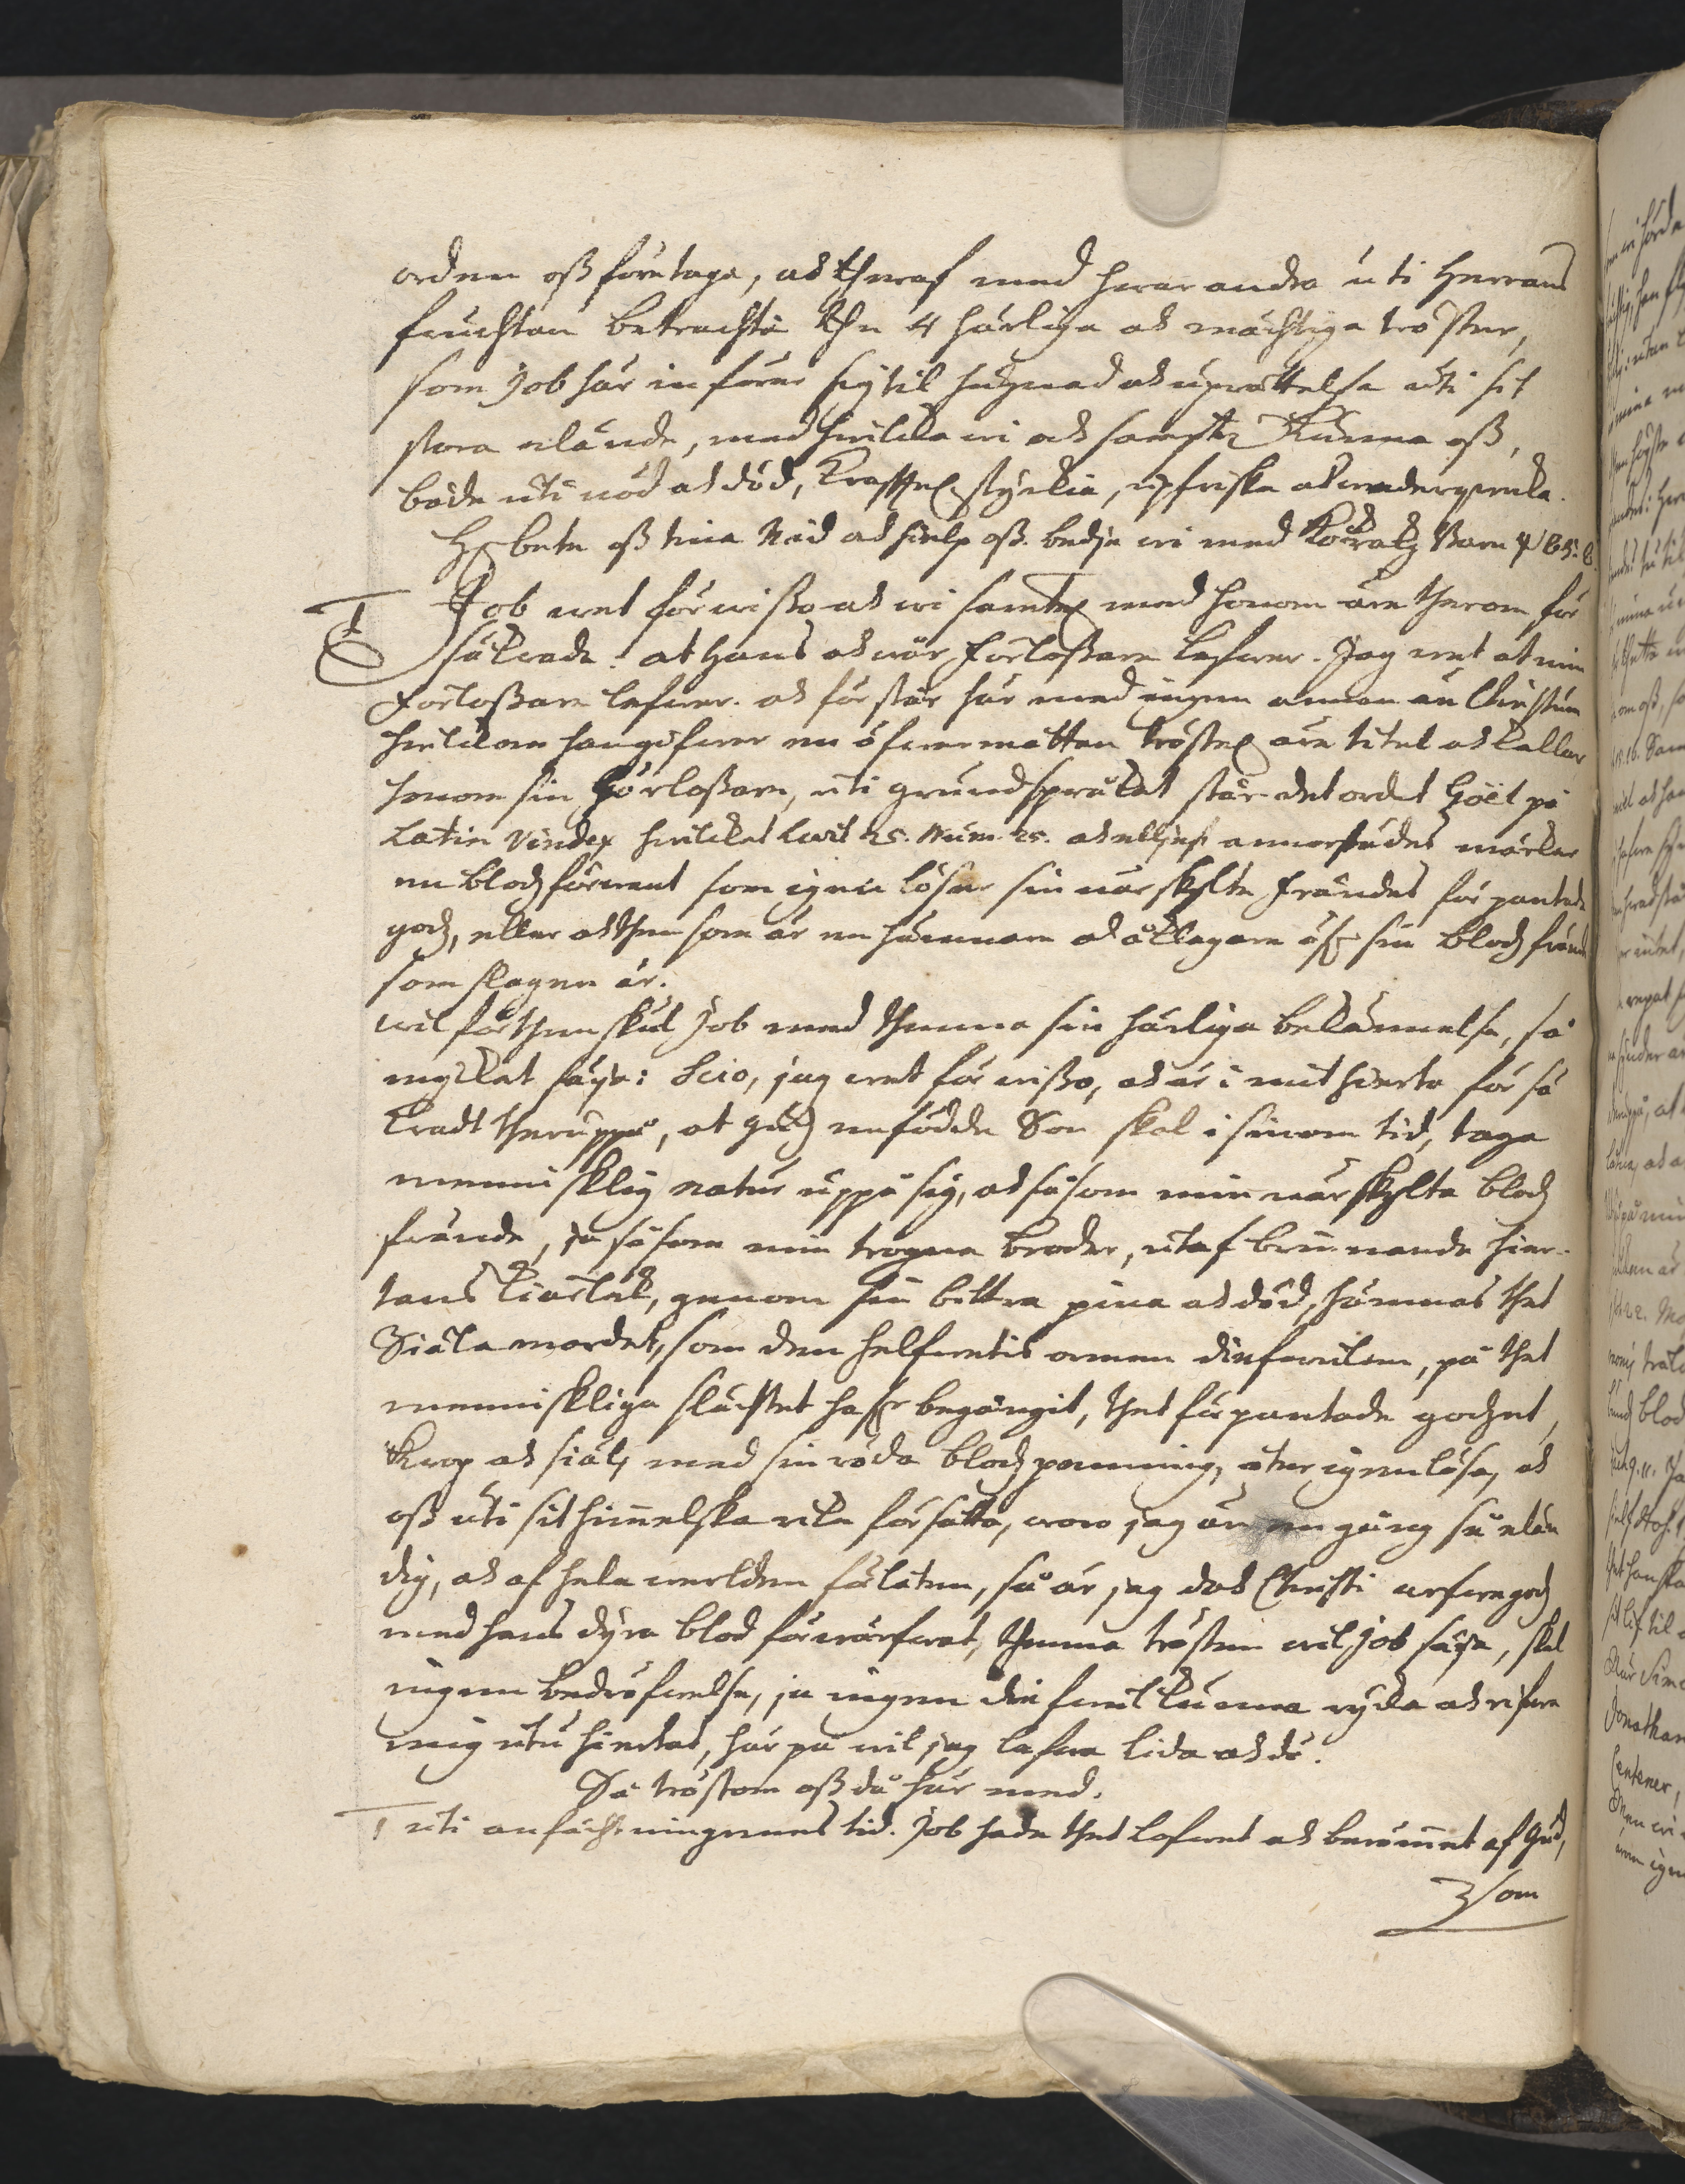 orden oss företaga, och theraf med hwar andra uti Herrans
fruchtan betrachta the 4 härliga och mächtiga tröster,
som Job här införer sig til hugnad och uprättelse uti sit
stora elände, med hwilka wi och sampt: kunna oss,
både uti nöd och död, styrkia, upfriska och wederqwecka.
H: bete oss tina Nåd och hielp oss. bedje wi med Barn ψ 85: 8.
I Job wet förwisso och wi sampt: med honom äre therom för
säkrade. at hans och wår Förlossare lefwer. Jag wet at min
Förlossare lefwer. och förstår här med ingen annan än Christum
hwilkom han gifwer en öfwermåttan tröstel: äre titel och kallar
honom sin Förlossare, uti grundspråket står det ordet Goël på
Latin Vindex hwilket Levit 25. Num. 25. och elliest annorstädes märker
en blodzförwant som igen löser sin närskylte frändes förpantade
godz, eller och then som är en hämnare och åklagare öf: sin blodzfrände
som slagen är.
wil för then skul Job med thenna sin härliga bekännelse, så
mycket säija: Scio, jag wet förwisso, och är i mit hierta försä
kradt theruppå, at Gudz enfödde Son skal i sinom tid, taga
mennisklig natur uppå sig, och såsom min närskylte blodz
frände, ja såsom min trogna broder, utaf brinnande hier-
tans kiärlek, genom sin bittra pina och död, hämnas thet
Siäla mordet, som den helfwetis ormen diefwulen, på thet
menniskliga slächtet haf:r begångit, thet förpantade godzet,
Krop och siäl, med sin röda blodz panning, åter igenlösa, och
oss uti sit himelska rike försätta, wore jag än en gång så elän
dig, och af hela werlden förlåten, så är jag doch Christi arfwegodz
med hans dyra blod förwärfwat, thenna trösten wil Job säija, skal
ingen bedröfwelse, ja ingen diefwul kunna rycka och rifwa
mig utu hiertat, här på wil jag lefwa lida och dö.
Så tröstom oss då här med.
1 uti anfächtningenes tid. Job hade thet lofwet och berömet af Gud,
som